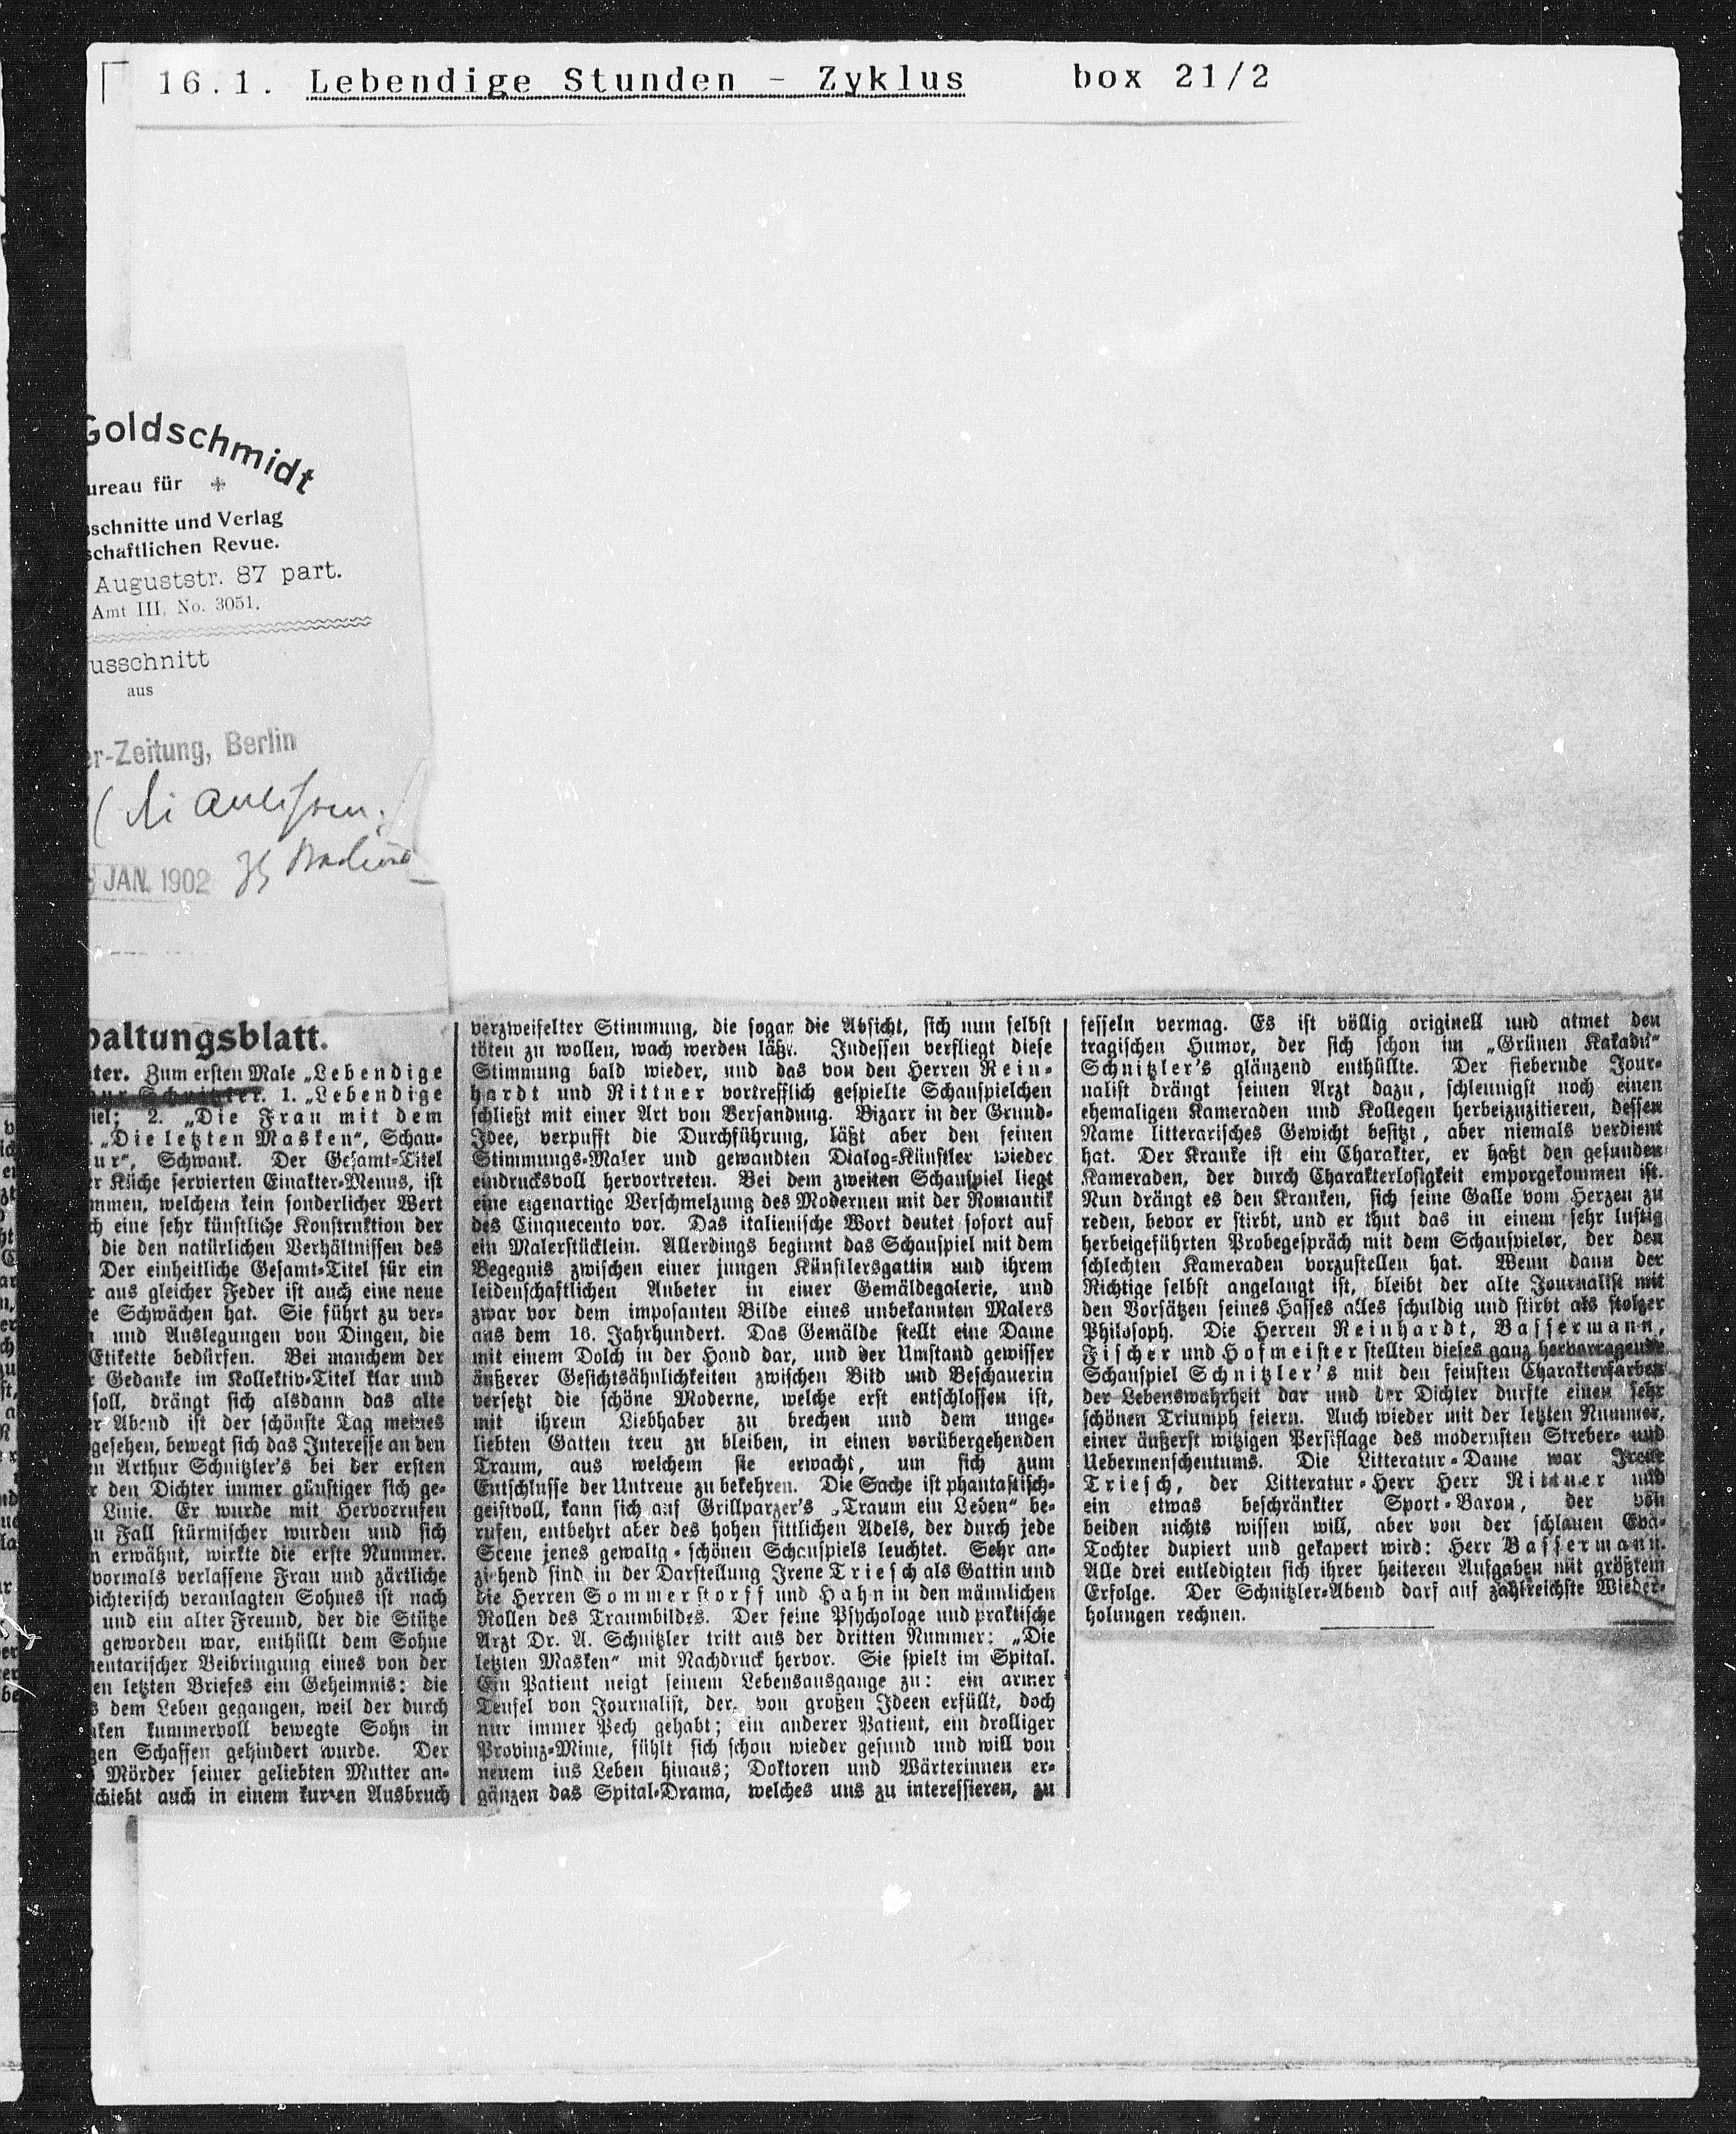 16.1. Lebendige Stunden - Zyklus box 21/2
Goldschmidt
ureau für
sschnitte und Verlag
schaftlichen Revue.
Auguststr. 87 part.
Amt III, No. 3051.
usschnitt
aus
er-Zeitung, Berlin
JAN. 1902
haltungsblatt.
ter. Zum ersten Male „Lebendige
Schnitzler. 1. „Lebendige
iel; 2. „Die Frau mit dem
„Die letzten Masken“, Schau-
ur“, Schwank. Der Gesamt-Titel
er Küche servierten Einakter-Menus, ist
mmen, welchem kein sonderlicher Wert
ch eine sehr künstliche Konstruktion der
die den natürlichen Verhältnissen des
Der einheitliche Gesamt-Titel für ein
r aus gleicher Feder ist auch eine neue
e Schwächen hat. Sie führt zu ver-
und Auslegungen von Dingen, die
Etikette bedürfen. Bei manchem der
r Gedanke im Kollektiv-Titel klar und
soll, drängt sich alsdann das alte
er Abend ist der schönste Tag meines
gesehen, bewegt sich das Interesse an den
en Arthur Schnitzler's bei der ersten
r den Dichter immer günstiger sich ge-
Linie. Er wurde mit Hervorrufen
Fall stürmischer wurden und sich
n erwähnt, wirkte die erste Nummer.
vormals verlassene Frau und zärtliche
dichterisch veranlagten Sohnes ist nach
und ein alter Freund, der die Stütze
geworden war, enthüllt dem Sohne
mentarischer Beibringung eines von der
en letzten Briefes ein Geheimnis: die
s dem Leben gegangen, weil der durch
nken kummervoll bewegte Sohn in
gen Schaffen gehindert wurde. Der
Mörder seiner geliebten Mutter an-
schieht auch in einem kurzen Ausbruch
verzweifelter Stimmung, die sogar die Absicht, sich nun selbst
töten zu wollen, wach werden läßt. Indessen verfliegt diese
Stimmung bald wieder, und das von den Herren Rein-
hardt und Rittner vortrefflich gespielte Schauspielchen
schließt mit einer Art von Versandung. Bizarr in der Grund-
Idee, verpufft die Durchführung, läßt aber den feinen
Stimmungs-Maler und gewandten Dialog-Künstler wieder
eindrucksvoll hervortreten. Bei dem zweiten Schauspiel liegt
eine eigenartige Verschmelzung des Modernen mit der Romantik
des Cinquecento vor. Das italienische Wort deutet sofort auf
ein Malerstücklein. Allerdings beginnt das Schauspiel mit dem
Begegnis zwischen einer jungen Künstlersgattin und ihrem
leidenschaftlichen Anbeter in einer Gemäldegalerie, und
zwar vor dem imposanten Bilde eines unbekannten Malers
aus dem 16. Jahrhundert. Das Gemälde stellt eine Dame
mit einem Dolch in der Hand dar, und der Umstand gewisser
äußerer Gesichtsähnlichkeiten zwischen Bild und Beschauerin
versetzt die schöne Moderne, welche erst entschlossen ist,
mit ihrem Liebhaber zu brechen und dem unge-
liebten Gatten treu zu bleiben, in einen vorübergehenden
Traum, aus welchem sie erwacht, um sich zum
Entschlusse der Untreue zu bekehren. Die Sache ist phantastisch-
geistvoll, kann sich auf Grillparzer's „Traum ein Leben“ be-
rufen, entbehrt aber des hohen sittlichen Adels, der durch jede
Scene jenes gewaltg-schönen Schauspiels leuchtet. Sehr an-
ziehend sind in der Darstellung Irene Triesch als Gattin und
die Herren Sommerstorff und Hahn in den männlichen
Rollen des Traumbildes. Der feine Psychologe und praktische
Arzt Dr. A. Schnitzler tritt aus der dritten Nummer: „Die
letzten Masken“ mit Nachdruck hervor. Sie spielt im Spital.
Ein Patient neigt seinem Lebensausgange zu: ein armer
Teufel von Journalist, der, von großen Ideen erfüllt, doch
nur immer Pech gehabt; ein anderer Patient, ein drolliger
Provinz-Mime, fühlt sich schon wieder gesund und will von
neuem ins Leben hinaus; Doktoren und Wärterinnen er-
gänzen das Spital-Drama, welches uns zu interessieren, zu
fesseln vermag. Es ist völlig originell und atmet den
tragischen Humor, der sich schon im „Grünen Kakadu“
Schnitzler's glänzend enthüllte. Der fiebernde Jour-
nalist drängt seinen Arzt dazu, schleunigst noch einen
ehemaligen Kameraden und Kollegen herbeizuzitieren, dessen
Name litterarisches Gewicht besitzt, aber niemals verdient
hat. Der Kranke ist ein Charakter, er haßt den gesunden
Kameraden, der durch Charakterlosigkeit emporgekommen ist.
Nun drängt es den Kranken, sich seine Galle vom Herzen zu
reden, bevor er stirbt, und er thut das in einem sehr lustig
herbeigeführten Probegespräch mit dem Schauspieler, der den
schlechten Kameraden vorzustellen hat. Wenn dann der
Richtige selbst angelangt ist, bleibt der alte Journalist mit
den Vorsätzen seines Hasses alles schuldig und stirbt als stolzer
Philosoph. Die Herren Reinhardt, Bassermann,
Fischer und Hofmeister stellten dieses ganz hervorragende
Schauspiel Schnitzler's mit den feinsten Charakterfarben
der Lebenswahrheit dar und der Dichter durfte einen sehr
schönen Triumph feiern. Auch wieder mit der letzten Nummer,
einer äußerst witzigen Persiflage des modernsten Streber- und
Uebermenschentums. Die Litteratur-Dame war Irene
Triesch, der Litteratur-Herr Herr Rittner und
ein etwas beschränkter Sport-Baron, der von
beiden nichts wissen will, aber von der schlauen Eva-
Tochter dupiert und gekapert wird: Herr Bassermann.
Alle drei entledigten sich ihrer heiteren Aufgaben mit größtem
Erfolge. Der Schnitzler-Abend darf auf zahlreichste Wieder-
holungen rechnen.